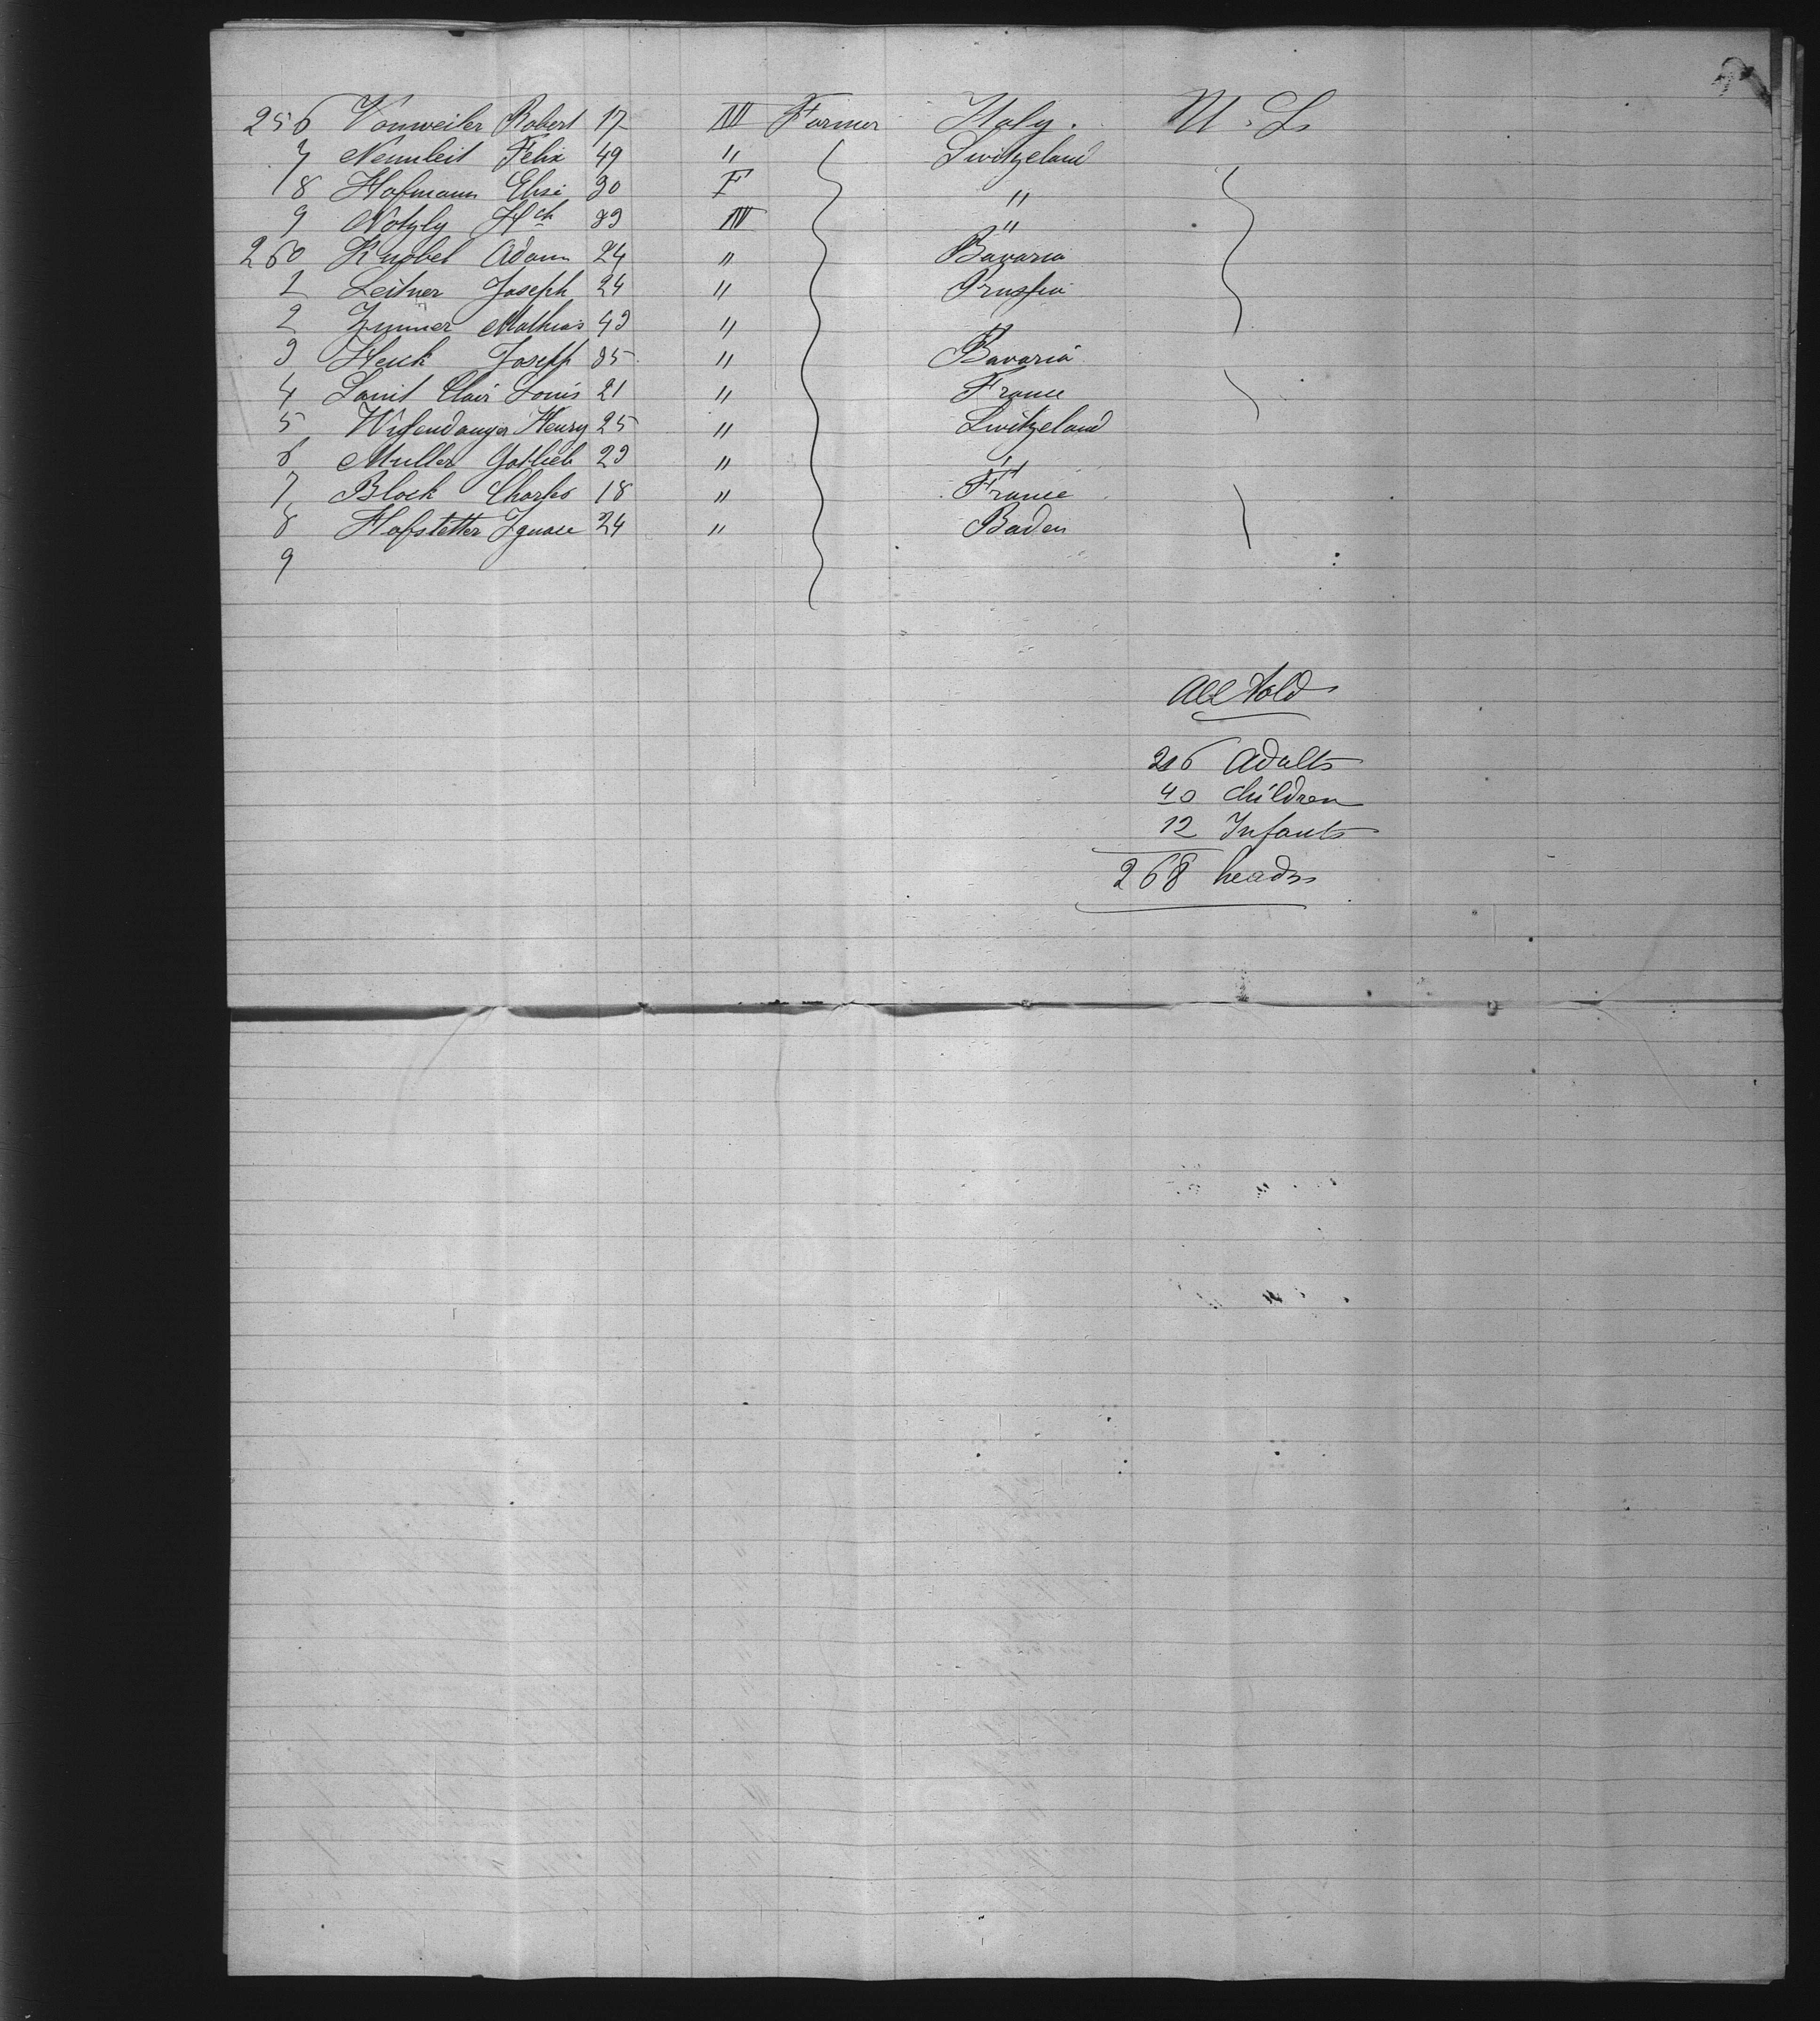 256 Vonweiler Robert 17 M Farmer Italy. U. S.
7 Nennleit Felix 49 " Switzeland
8 Hofmann Elise 30 F "
9 Notzly Hch 39 M "
260 Knobel Adam 24 " Bavaria
1 Leitner Joseph 24 " Prussia
2 Zimmer Mathias 43 " "
3 Heck Joseph 35 " Bavaria
4 Saint Clair Louis 21 " France
5 Wissendanger Henry 25 " Switzeland
6 Muller Gottlieb 23 " "
7 Block Charles 18 " France
8 Hofstetter Ignace 24 " Baden
9
All told
216 Adults
40 children
12 Infants
268 heads